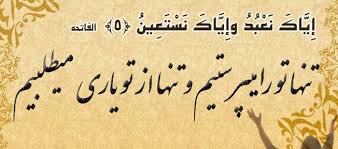 إِيَّاكَ نَعْبُدُ وإِيَّاكَ نَسْتَعِينُ ﴿٥﴾ الفاتحه
تنها تو را میپرستیم و تنها از تو یاری میطلبیم